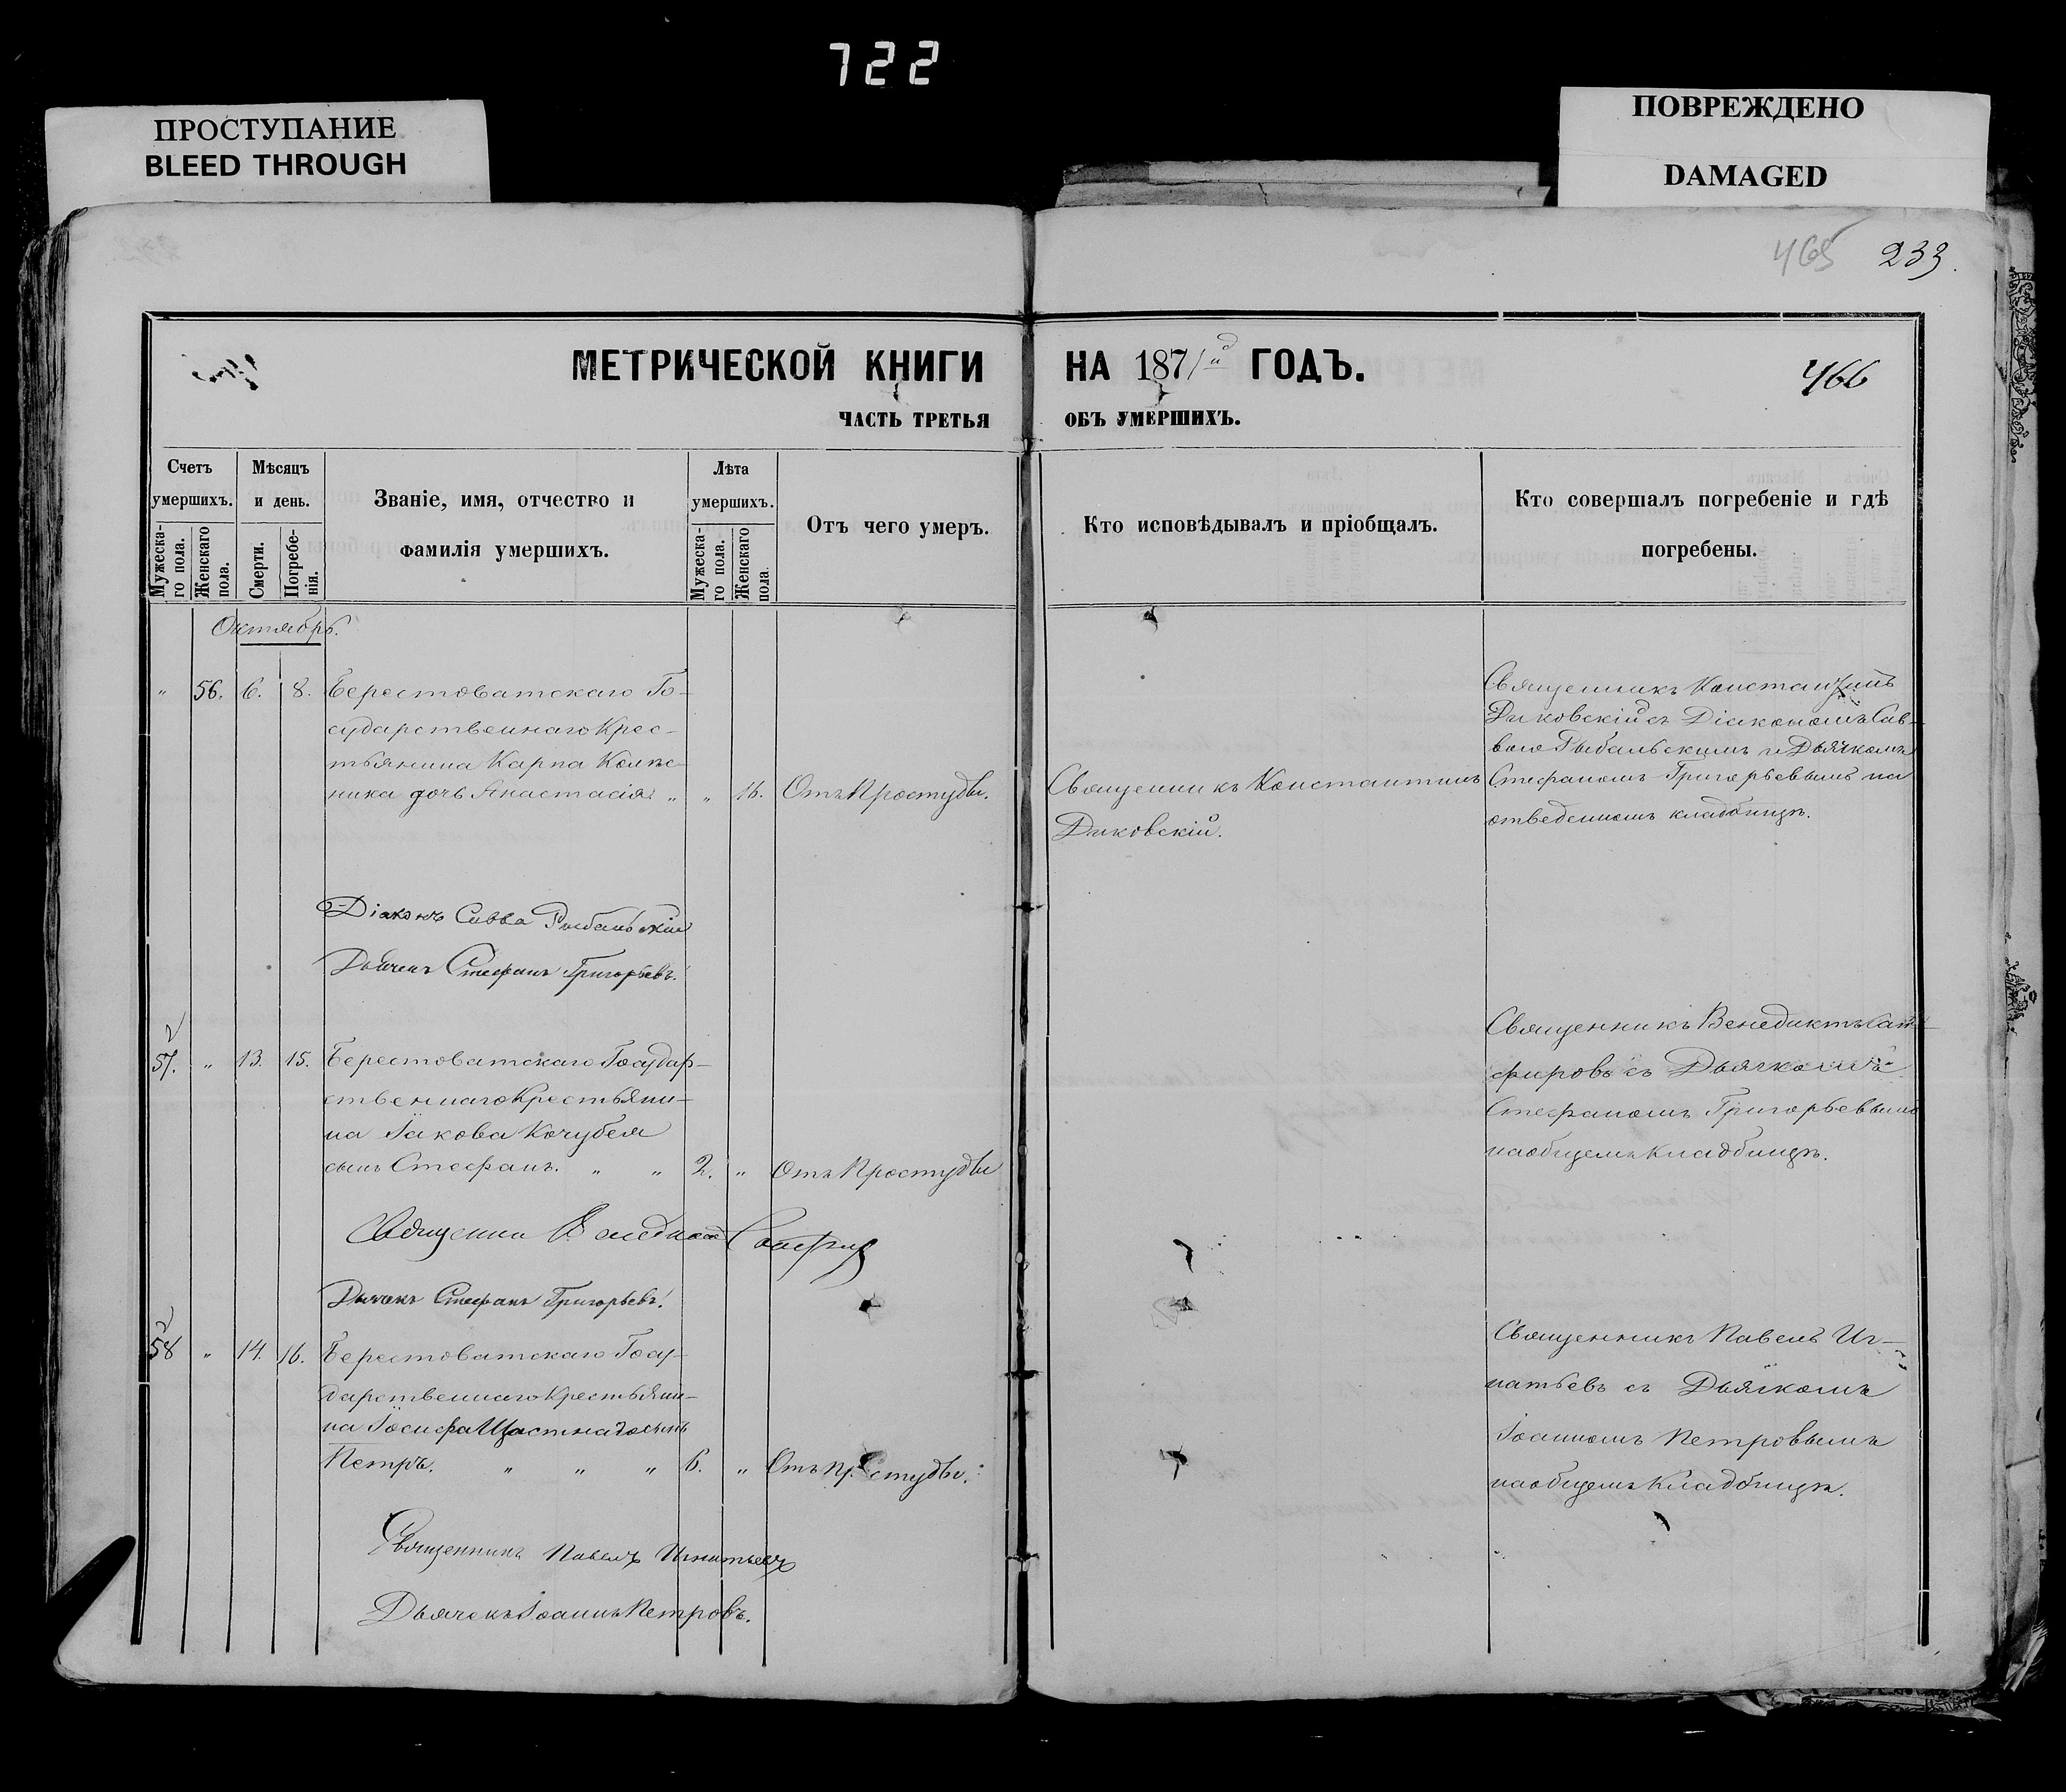 722
ПРОСТУПАНИЕ
BLEED THROUGH
ПОВРЕЖДЕНО
DAMAGED
465 233.
МЕТРИЧЕСКОЙ КНИГИ НА 1871й ГОДЪ.
466
ЧАСТЬ ТРЕТЬЯ ОБЪ УМЕРШИХЪ.
Счетъ умершихъ.
Мужеска-го пола.
Женскаго пола.
Мѣсяцъ и день.
Смерти.
Погребе-нія.
Званіе, имя, отчество и
фамилія умершихъ.
Лѣта умершихъ.
Мужеска-го пола.
Женскаго пола.
Отъ чего умеръ.
Кто исповѣдывалъ и пріобщалъ.
Кто совершалъ погребеніе и гдѣ
погребены.
Октябрь.
" 56. 6. 8. Берестоватскаго Го-
сударственнаго Крес-
тьянина Карпа Колѣс-
ника дочь Анастасія. " " 16. Отъ Простуды.
Священникъ Константинъ
Диковскій.
Священникъ Константинъ
Диковскій съ Діакономъ Сав-
вою Рыбальскимъ и Дьячкомъ
Стефаномъ Григорьевымъ на
отведенномъ кладбищѣ.
Діаконъ Савва Рыбальскій
Дьячекъ Стефанъ Григорьевъ.
57. " 13. 15. Берестоватскаго Государ-
ственнаго Крестьяни-
на Іакова Кочубея
сынъ Стефанъ. " " 2. " Отъ Простуды
Священникъ Венедиктъ Сап-
фировъ съ Дьячкомъ
Стефаномъ Григорьевымъ
на общемъ Кладбищѣ.
Священни Венедикт
Дьячекъ Стефанъ Григорьевъ.
58 " 14. 16. Берестоватскаго Госу-
дарственнаго Крестьяни-
на Іосифа Щастнаго сынъ
Петръ. " " " 6. " Отъ Простуды.
Священникъ Павелъ Иг-
натьевъ съ Дьячкомъ
Іоанномъ Петровымъ
на общемъ Кладбищѣ.
Священникъ Павелъ Игнатьевъ
Дьячекъ Іоаннъ Петровъ.